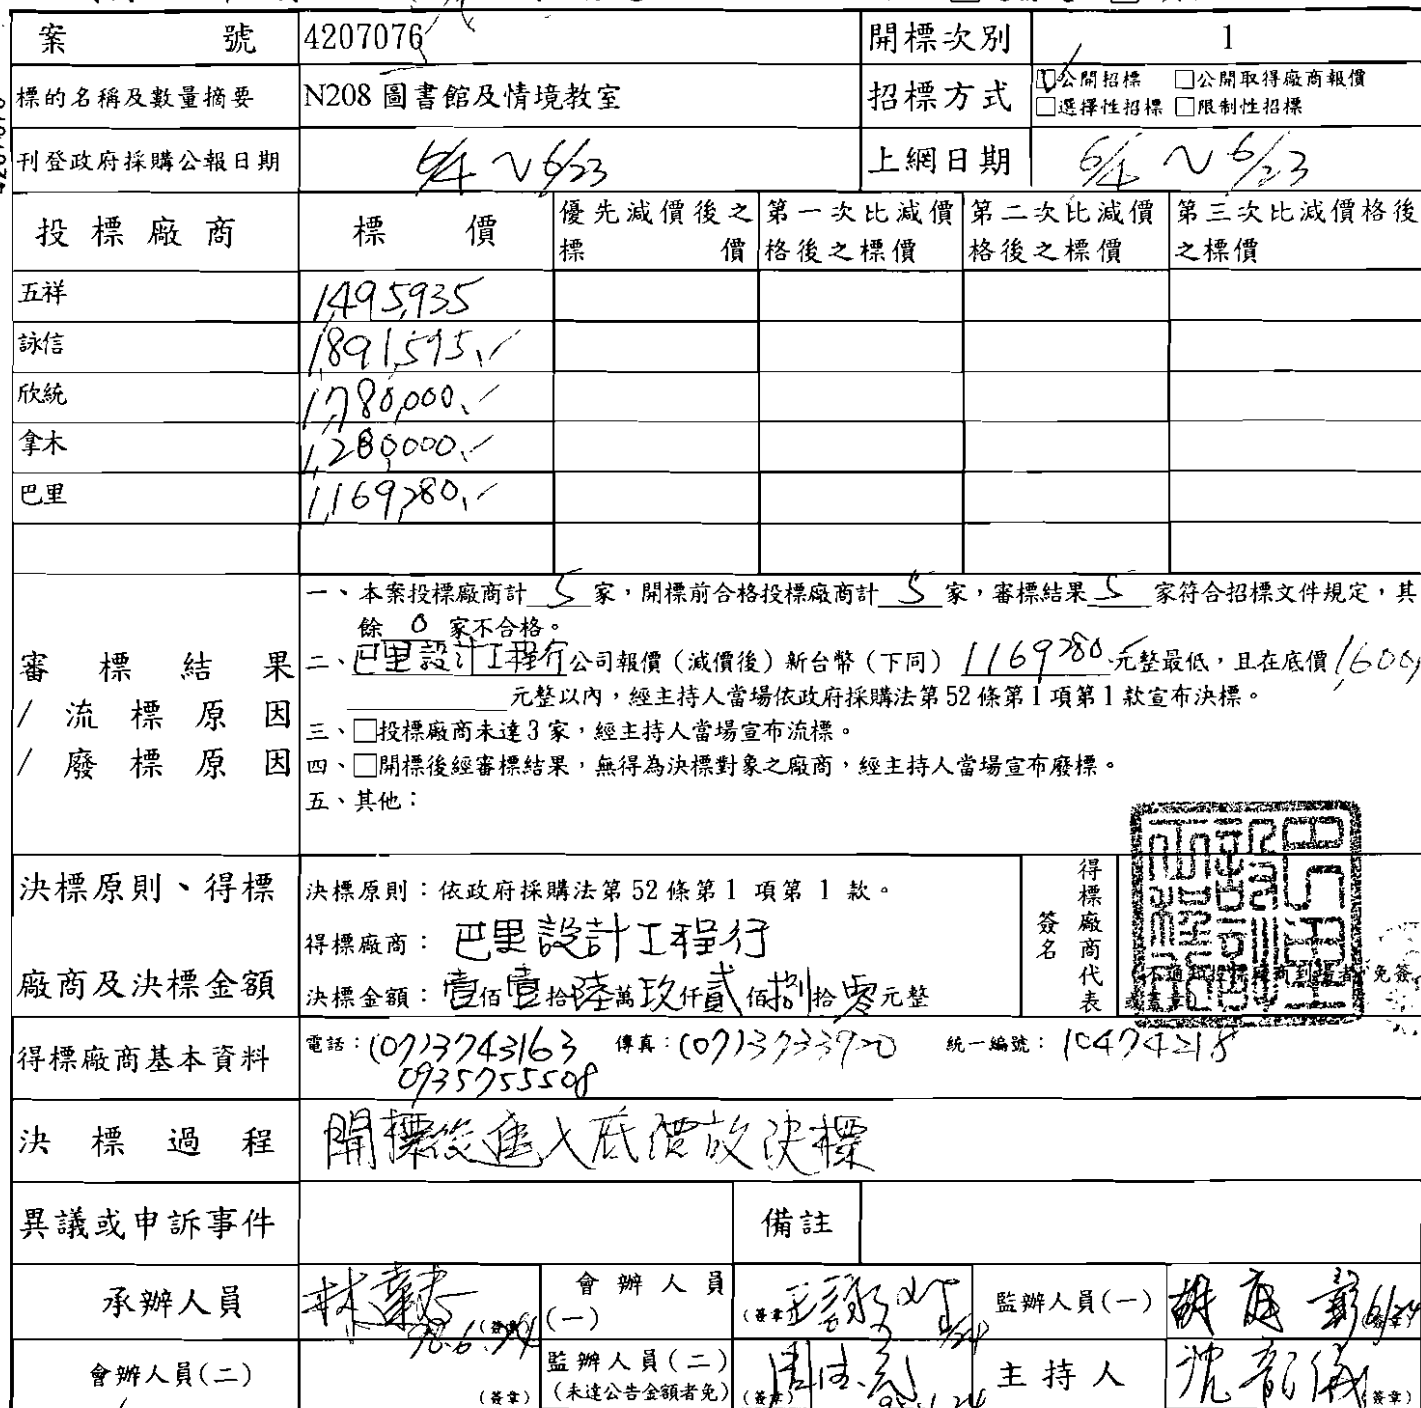 案號 4207076 開標次別 1
標的名稱及數量摘要 N208 圖書館及情境教室 招標方式 ☑公開招標 □公開取得廠商報價
□選擇性招標 □限制性招標
刊登政府採購公報日期 6/4～6/23 上網日期 6/4～6/23
投標廠商 標價 優先減價後之標價 第一次比減價格後之標價 第二次比減價格後之標價 第三次比減價格後之標價
五祥 1,495,935
詠信 1,891,595
欣統 1,780,000
拿木 1,280,000
巴里 1,169,280
審標結果
/流標原因
/廢標原因
一、本案投標廠商計 5 家，開標前合格投標廠商計 5 家，審標結果 5 家符合招標文件規定，其
餘 0 家不合格。
二、巴里設計工程行公司報價（減價後）新台幣（下同）1169280元整最低，且在底價1600,
元整以內，經主持人當場依政府採購法第52條第1項第1款宣布決標。
三、□投標廠商未達3家，經主持人當場宣布流標。
四、□開標後經審標結果，無得為決標對象之廠商，經主持人當場宣布廢標。
五、其他：
決標原則、得標
廠商及決標金額
決標原則：依政府採購法第52條第1 項第 1 款。
得標廠商：巴里設計工程行
決標金額：壹佰壹拾陸萬玖仟貳佰捌拾零元整
得標廠商代表
簽名
得標廠商基本資料 電話：(07)3743163 傳真：(07)3733920 統一編號：10474218
0935755508
決標過程 開標後進入底價故決標
異議或申訴事件 備註
承辦人員 98.6.24 會辦人員(一) (簽章) 監辦人員(一) 6/24
會辦人員(二) (簽章) 監辦人員(二) (簽章) 主持人 (簽章)
(未達公告金額者免)